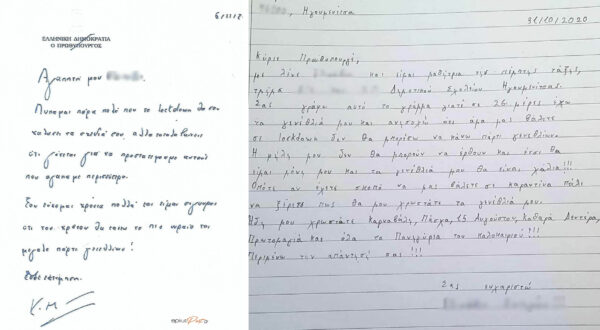 6/11/2
ΕΛΛΗΝΙΚΗ ΔΗΜΟΚΡΑΤΙΑ
Ο ΠΡΩΘΥΠΟΥΡΓΟΣ
Αγαπητή μου
Λυπάμαι πάρα πολύ που το lockdown θα σου
χαλάσει τα σχέδιά σου, αλλά καταλαβαίνεις
ότι γίνεται για να προστατέψουμε αυτούς
που αγαπάμε περισσότερο.
Σου εύχομαι χρόνια πολλά και είμαι σίγουρος
ότι του χρόνου θα κάνεις το πιο ωραίο και
μεγάλο πάρτι γενεθλίων!
Κ.Μ
, Ηγουμενίτσα
31/10/2020
Κύριε Πρωθυπουργέ,
με λένε και είμαι μαθήτρια της πέμπτης τάξης,
Δημοτικού Σχολείου Ηγουμενίτσας.
Σας γράφω αυτό το γράμμα γιατί σε 26 μέρες έχω
τα γενέθλιά μου και ανησυχώ ότι άμα μας βάλετε
σε lockdown δεν θα μπορέσω να κάνω πάρτι γενεθλίων.
Η φίλες μου δεν θα μπορούν να έρθουν και έτσι θα
είμαι μόνη μου και τα γενέθλιά μου θα είναι χάλια!!!
Οπότε αν έχετε σκοπό να μας βάλετε σε καραντίνα πάλι
να ξέρετε πως θα μου χρωστάτε τα γενέθλιά μου.
Ήδη μου χρωστάτε Καρναβάλι, Πάσχα, 15 Αυγούστου, Καθαρά Δευτέρα,
Πρωτομαγιά και όλα τα Πανηγύρια του καλοκαιριού!!!
Περιμένω την απάντησή σας!!!
Σας ευχαριστώ